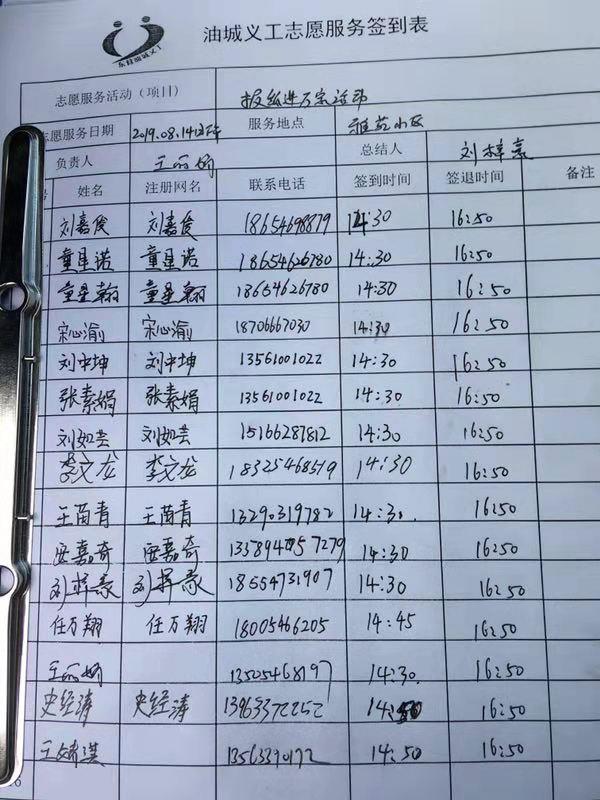 油城义工志愿服务签到表
志愿服务活动（项目） 报纸进万家活动
志愿服务日期 2019.08.14 服务地点 雅苑小区
负责人 王丽娇 总结人 刘梓豪
号 姓名 注册网名 联系电话 签到时间 签退时间 备注
刘嘉俊 刘嘉俊 18654698879 14:30 16:50
童星诺 童星诺 18654626780 14:30 16:50
童星翰 童星翰 18654626780 14:30 16:50
宋心渝 宋心渝 18706667030 14:30 16:50
刘中坤 刘中坤 13561001022 14:30 16:50
张素娟 张素娟 13561001022 14:30 16:50
刘如芸 刘如芸 15166287812 14:30 16:50
李文龙 李文龙 18325468519 14:30 16:50
王苗青 王苗青 13290319782 14:30. 16:50
嘉奇 嘉奇 14:30 16:50
刘梓豪 刘梓豪 18654731907 14:30 16:50
任万翔 任万翔 18005466205 14:45 16:50
王丽娇 13505468197 14:30. 16:50
史经涛 史经涛 13963372252 16:50
王婧淇 14:50 16:50